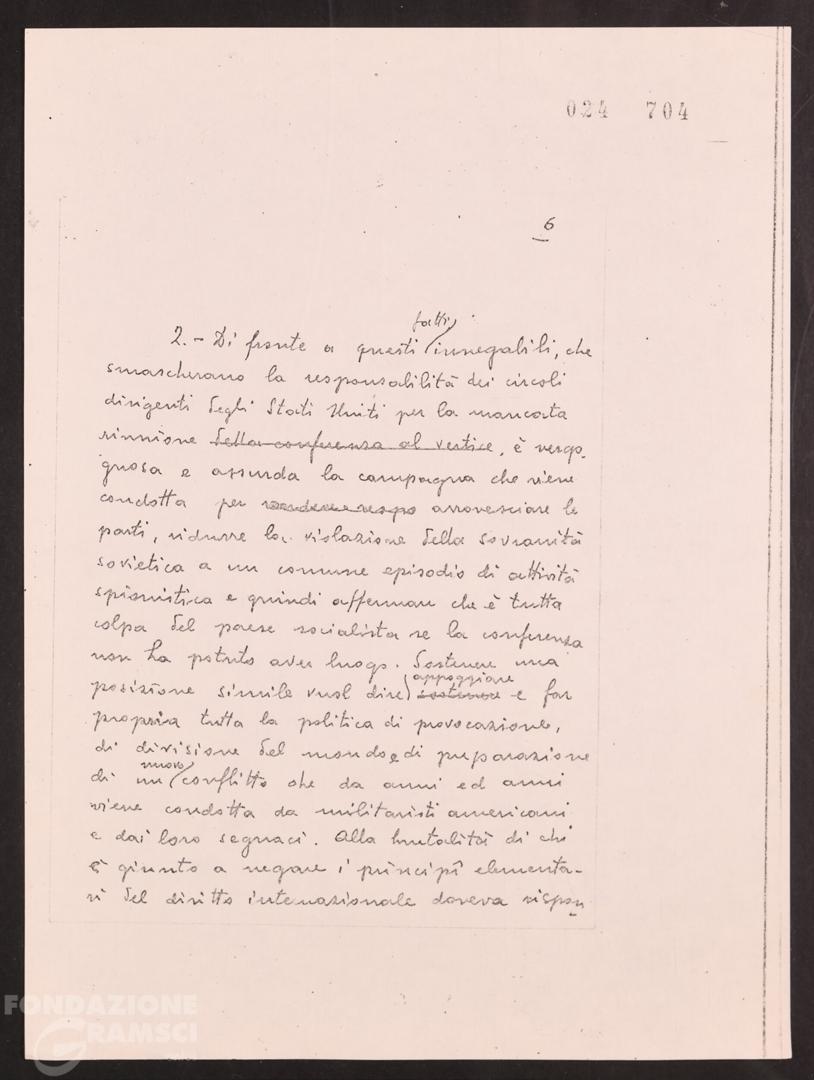 024 704
6
fatti
2. - Di fronte a questi innegabili, che
smascherano la responsabilità dei circoli
dirigenti degli Stati Uniti per la mancata
riunione della conferenza al vertice, è vergo-
gnosa e assurda la campagna che viene
condotta per rendere respo arrovesciare le
parti, ridurre la violazione della sovranità
sovietica a un comune episodio di attività
spionistica e quindi affermare che è tutta
colpa del paese socialista se la conferenza
non ha potuto aver luogo. Sostenere una
appoggiare
posizione simile vuol dire sostenere e far
propria tutta la politica di provocazione,
di divisione del mondo e di preparazione
nuovo
di un conflitto che da anni ed anni
viene condotta da militaristi americani
e dai loro seguaci. Alla brutalità di chi
è giunto a negare i principî elementa-
ri del diritto internazionale doveva rispon
FONDAZIONE
GRAMSCI